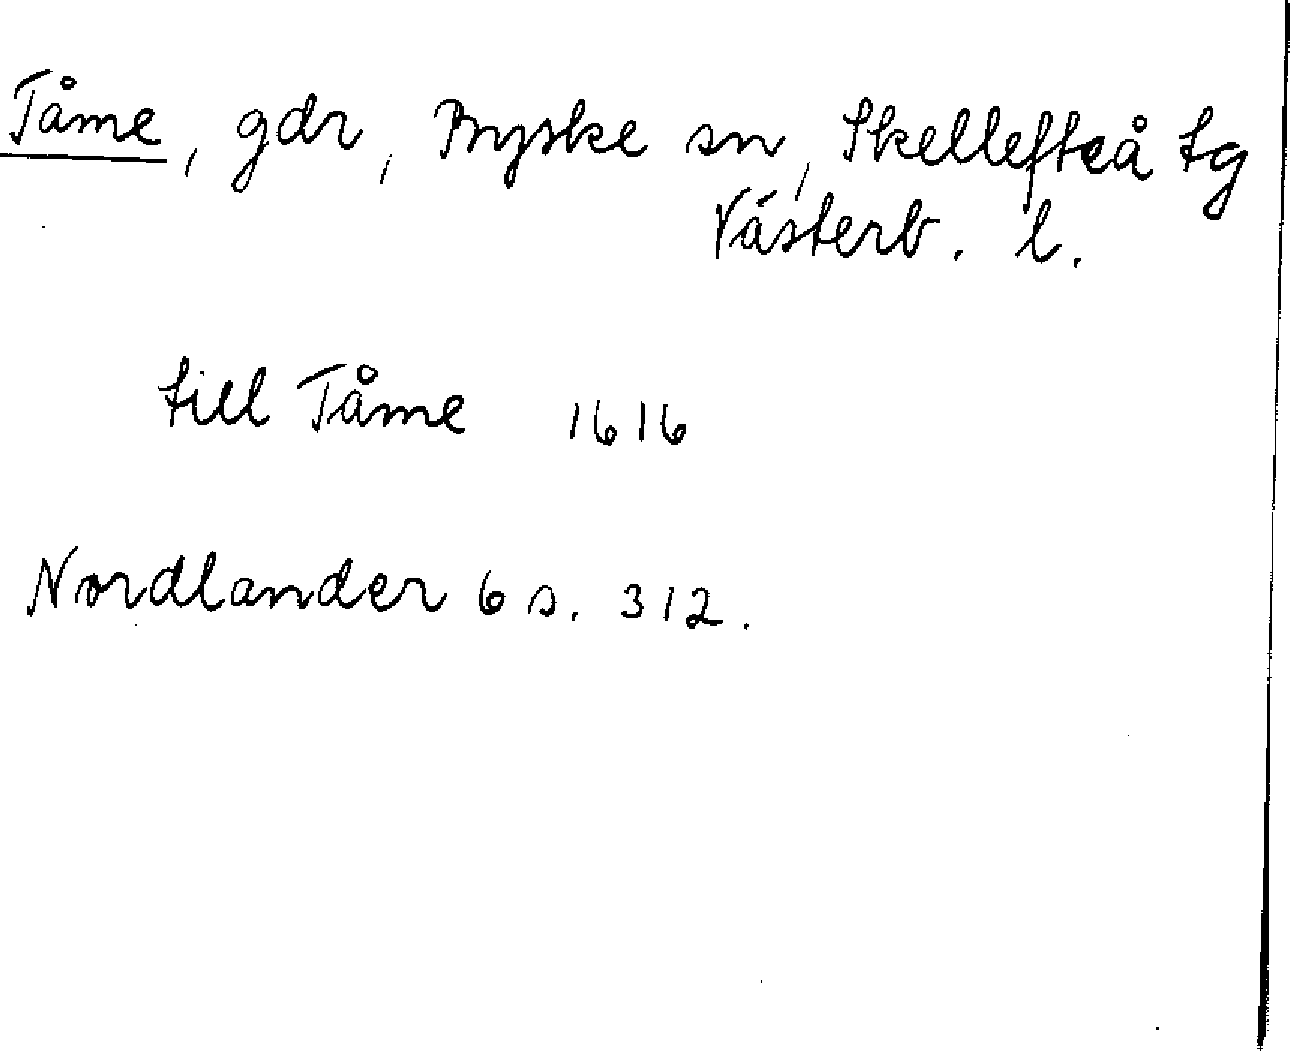 Tåme, gdr, Byske sn, Skellefteå tg
Västerb. l.
till Tåme 1616
Nordlander 6 s. 312.